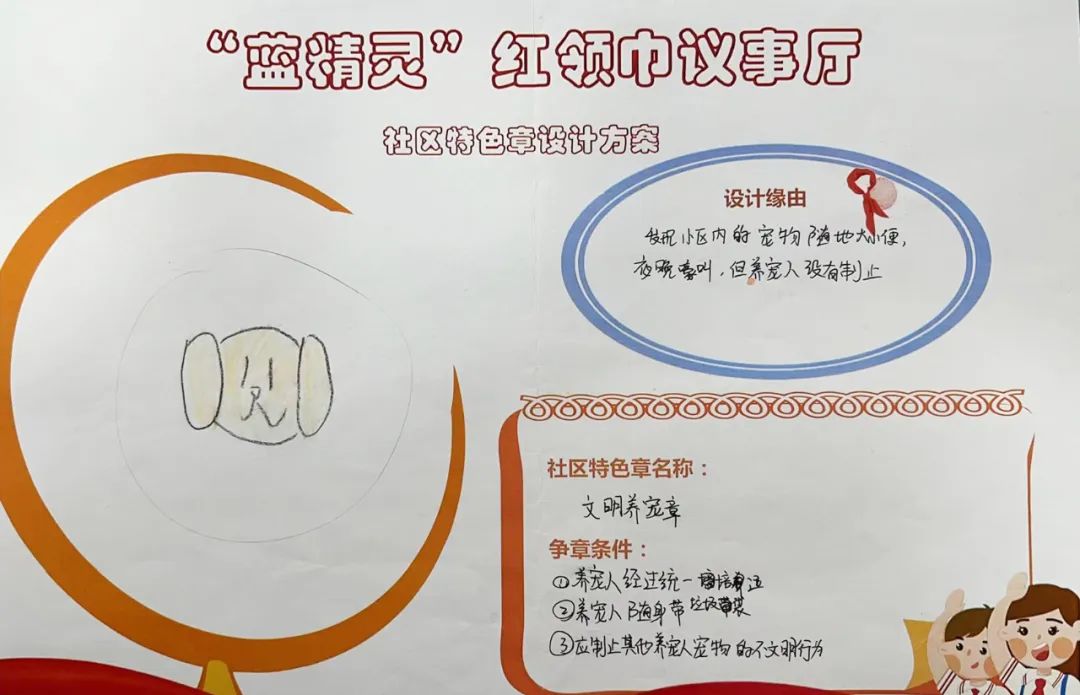 “蓝精灵”红领巾议事厅
社区特色章设计方案
设计缘由
发现小区内的宠物随地大小便,
夜晚嚎叫,但养宠人没有制止
社区特色章名称：
文明养宠章
争章条件：
①养宠人经过统一
②养宠人随身带垃圾袋
③应制止其他养宠人宠物的不文明行为